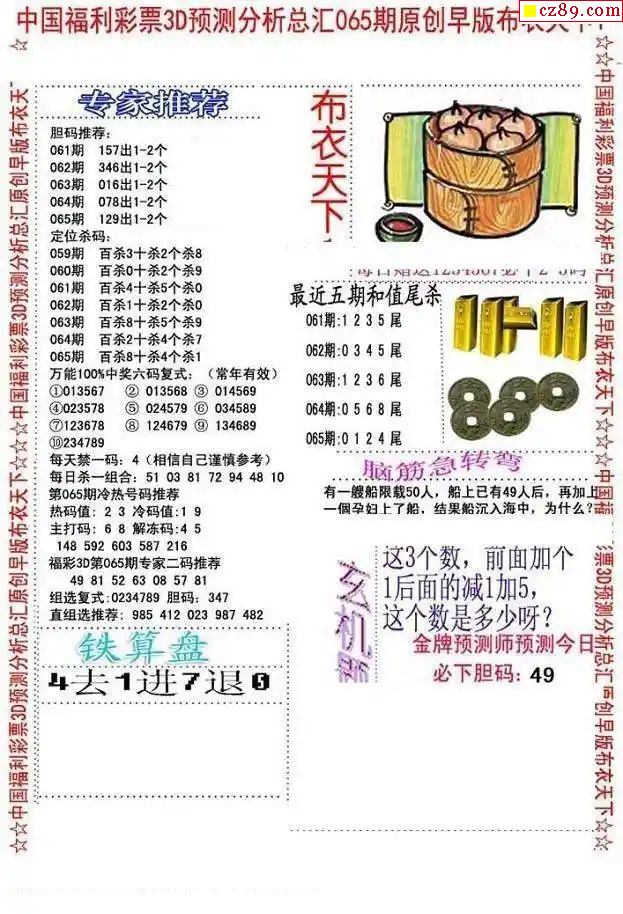 中国福利彩票3D预测分析总汇065期原创早版布衣天下
cz89.com
☆☆中国福利彩票3D预测分析总汇原创早版布衣天下☆☆中国福利彩票3D预测分析总汇原创早版布衣天
专家推荐
胆码推荐:
061期 157出1-2个
062期 346出1-2个
063期 016出1-2个
064期 078出1-2个
065期 129出1-2个
定位杀码:
059期 百杀3十杀2个杀8
060期 百杀0十杀2个杀9
061期 百杀4十杀5个杀0
062期 百杀1十杀2个杀0
063期 百杀8十杀5个杀9
064期 百杀2十杀4个杀7
065期 百杀8十杀4个杀1
万能100%中奖六码复式:（常年有效）
①013567 ② 013568 ③ 014569
④023578 ⑤ 024579 ⑥ 034589
⑦123678 ⑧ 124679 ⑨ 134689
⑩234789
每天禁一码: 4（相信自己谨慎参考）
每日杀一组合: 51 03 81 72 94 48 10
第065期冷热号码推荐
热码值: 2 3 冷码值:1 9
主打码: 6 8 解冻码:4 5
148 592 603 587 216
福彩3D第065期专家二码推荐
49 81 52 63 08 57 81
组选复式:0234789 胆码: 347
直组选推荐: 985 412 023 987 482
铁算盘
4去1进7退0
布衣天下
每日赠送1234567必下2-3码
最近五期和值尾杀
061期:1 2 3 5 尾
062期:0 3 4 5 尾
063期:1 2 3 6 尾
064期:0 5 6 8 尾
065期:0 1 2 4 尾
脑筋急转弯
有一艘船限载50人，船上已有49人后，再加上
一個孕妇上了船，结果船沉入海中，为什么?
玄机
这3个数，前面加个
1后面的减1加5，
这个数是多少呀?
金牌预测师预测今日
必下胆码: 49
☆☆中国福利彩票3D预测分析总汇原创早版布衣天下☆☆中国福
彩票3D预测分析总汇 原创早版布衣天下☆☆